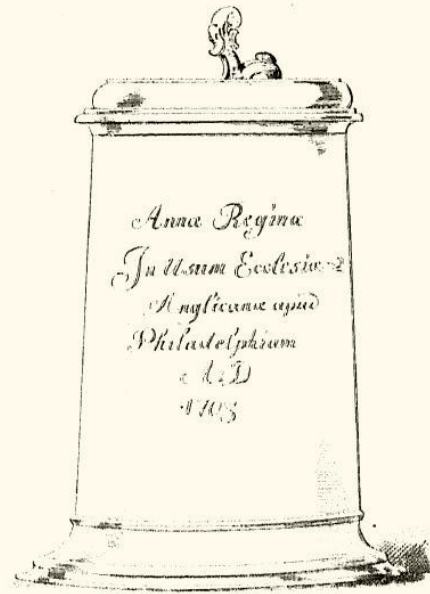 Annæ Reginæ
In Usum Ecclesiæ
Anglicanæ apud
Philadelphiam
A D